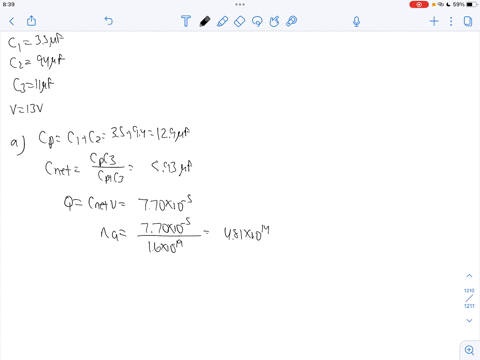 8:39
59%
C₁ = 3.5 μF
C₂ = 9.4 μF
C₃ = 11 μF
V = 13V
a) Cp = C₁ + C₂ = 3.5 + 9.4 = 12.9 μF
Cnet = CpC₃ / Cp+C₃ = 5.93 μF
Q = Cnet V = 7.70×10⁻⁵
na = 7.70×10⁻⁵ / 1.6×10⁻¹⁹ = 4.81×10¹⁴
1210
1211